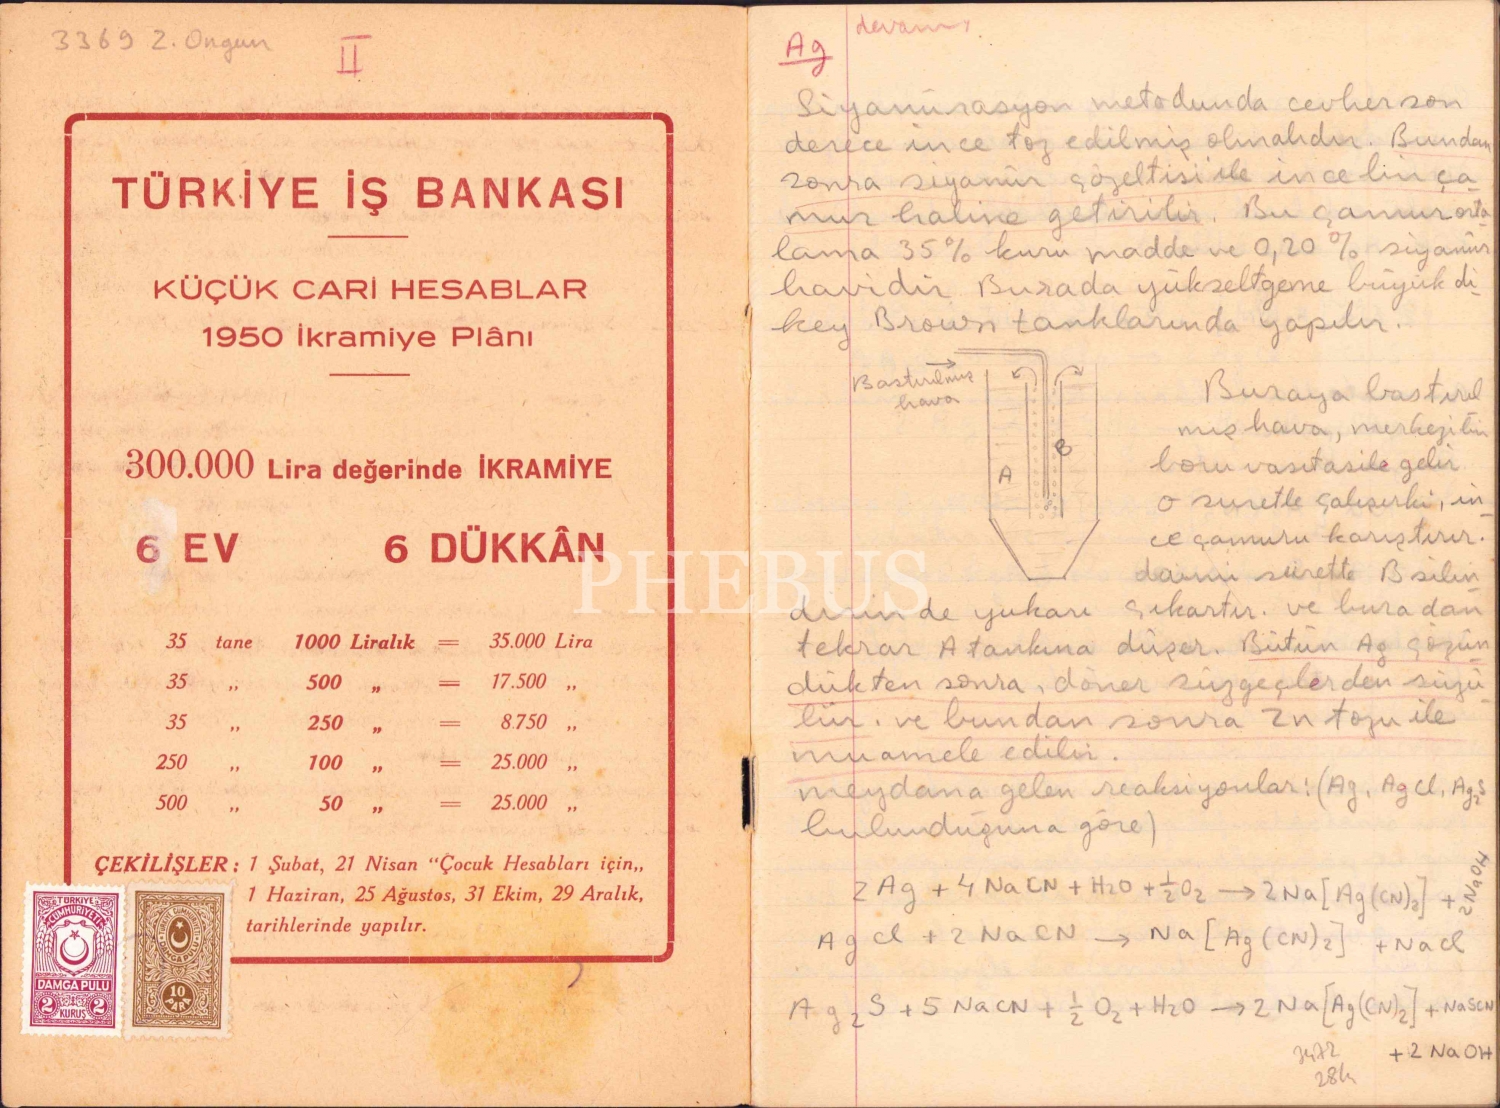 3369 Z. Ongun
II
TÜRKİYE İŞ BANKASI
KÜÇÜK CARİ HESABLAR
1950 İkramiye Plânı
300.000 Lira değerinde İKRAMİYE
6 EV 6 DÜKKÂN
35 tane 1000 Liralık = 35.000 Lira
35 ,, 500 ,, = 17.500 ,,
35 ,, 250 ,, = 8.750 ,,
250 ,, 100 ,, = 25.000 ,,
500 ,, 50 ,, = 25.000 ,,
ÇEKİLİŞLER: 1 Şubat, 21 Nisan "Çocuk Hesabları için,,
1 Haziran, 25 Ağustos, 31 Ekim, 29 Aralık,
tarihlerinde yapılır.
TÜRKİYE
CUMHURİYETİ
DAMGA PULU
2 KURUŞ 2
TÜRKİYE CUMHURİYETİ
DAMGA PULU
10
PARA
PHEBUS
Ag devamı
Siyanürasyon metodunda cevher son
derece ince toz edilmiş olmalıdır. Bundan
sonra siyanür çözeltisi ile ince bir ça
mur haline getirilir. Bu çamur orta
lama 35% kuru madde ve 0,20% siyanür
havidir. Burada yükseltgeme büyük di_
key Brown tanklarında yapılır.
Bastırılmış
hava
A
B
Buraya bastırıl
mış hava, merkezi bir
boru vasıtasile gelir
o suretle çalışırki, in_
ce çamuru karıştırır.
daimi surette B silin_
dirinde yukarı çıkartır. ve buradan
tekrar A tankına düşer. Bütün Ag çözün_
dükten sonra, döner süzgeçlerden süzü_
lür. ve bundan sonra Zn tozu ile
muamele edilir.
meydana gelen reaksiyonlar: (Ag, AgCl, Ag₂S
bulunduğuna göre)
2Ag + 4NaCN + H₂O + ½O₂ → 2Na[Ag(CN)₂] + 2NaOH
AgCl + 2NaCN → Na[Ag(CN)₂] + NaCl
Ag₂S + 5NaCN + ½O₂ + H₂O → 2Na[Ag(CN)₂] + NaSCN
+ 2NaOH